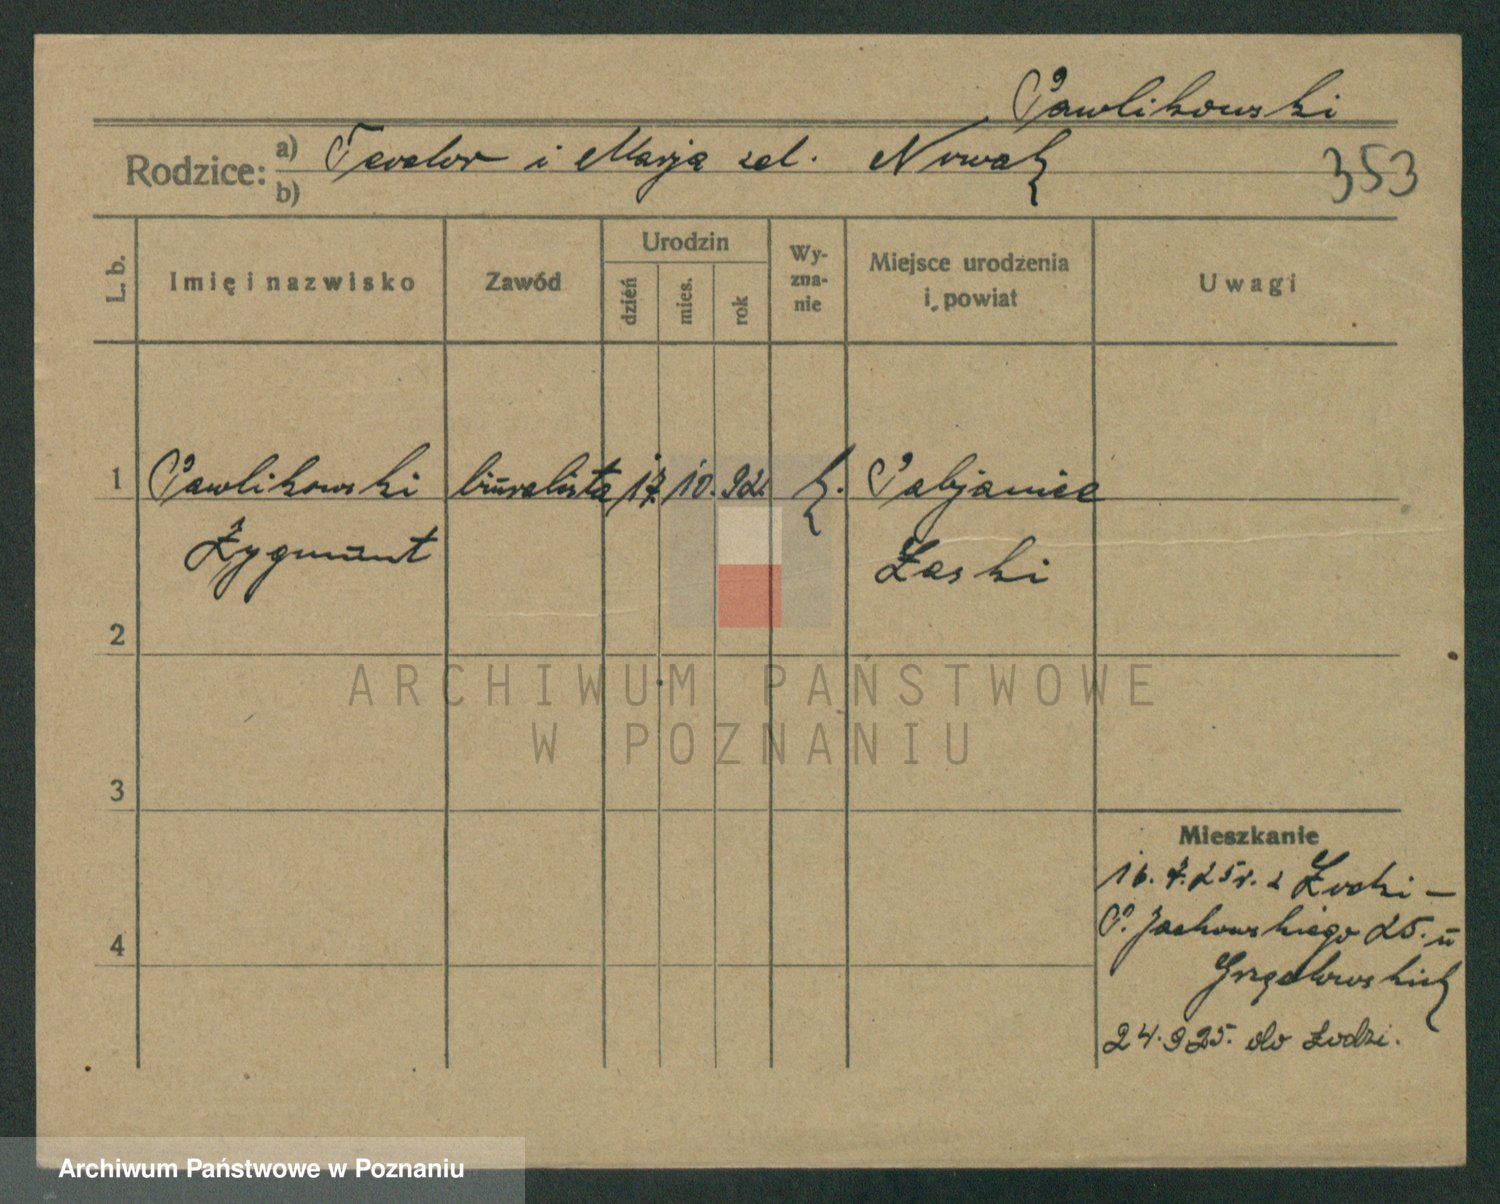 Pawlikowski
Rodzice: a) Teodor i Marja zd. Nowak
b)
353
L. b.
Imię i nazwisko
Zawód
Urodzin
dzień
mies.
rok
Wy-
zna-
nie
Miejsce urodzenia
i powiat
Uwagi
1 Pawlikowski biuralista 17. 10. 92. k. Pabjanice
Zygmunt Łaski
2
3
4
Mieszkanie
16. 7. 25 r. z Łodzi –
25. u
24.9 25. do Łodzi.
ARCHIWUM PAŃSTWOWE
W POZNANIU
Archiwum Państwowe w Poznaniu